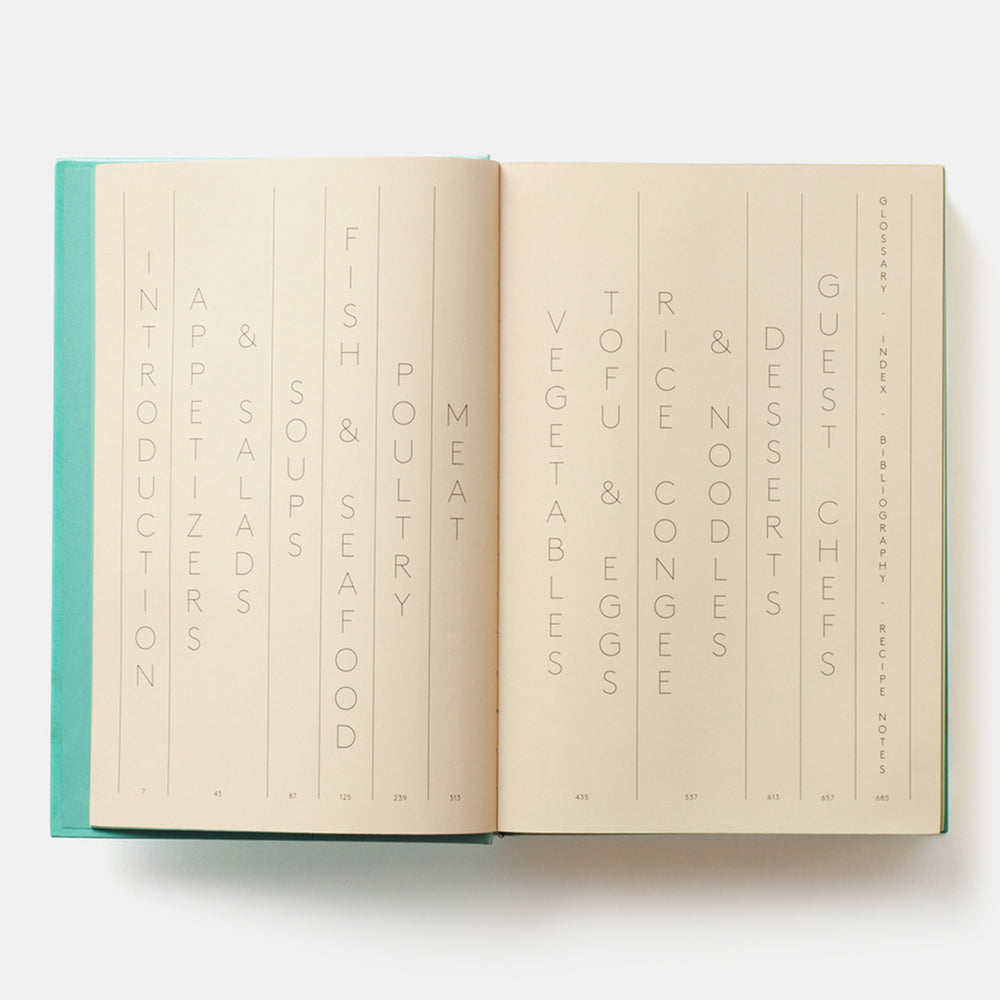 INTRODUCTION
7
APPETIZERS
& SALADS
43
SOUPS
87
FISH & SEAFOOD
125
POULTRY
239
MEAT
313
VEGETABLES
TOFU & EGGS
435
RICE CONGEE
& NOODLES
537
DESSERTS
613
GUEST CHEFS
657
GLOSSARY · INDEX · BIBLIOGRAPHY · RECIPE NOTES
685